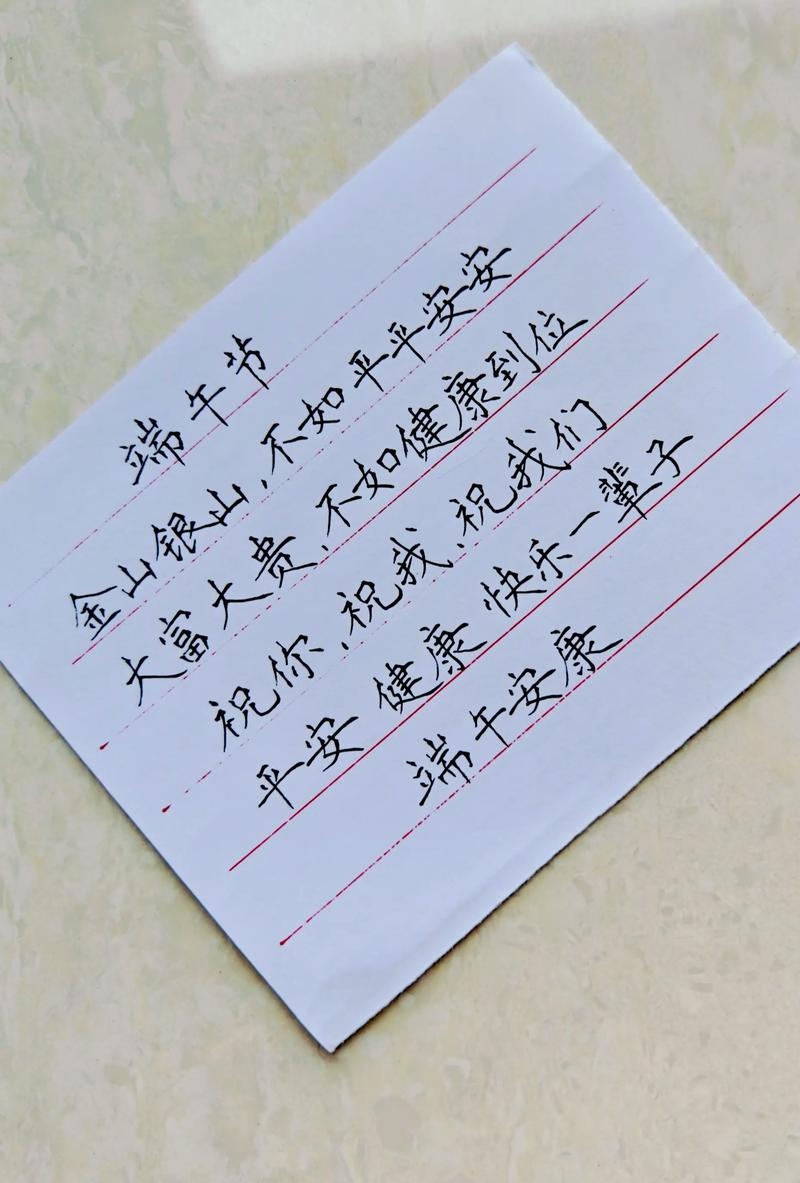 端午节
金山银山,不如平平安安
大富大贵,不如健康到位
祝你,祝我,祝我们
平安 健康 快乐一辈子
端午安康